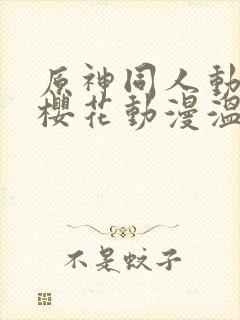 原神同人動
櫻花動漫溫
不是蚊子